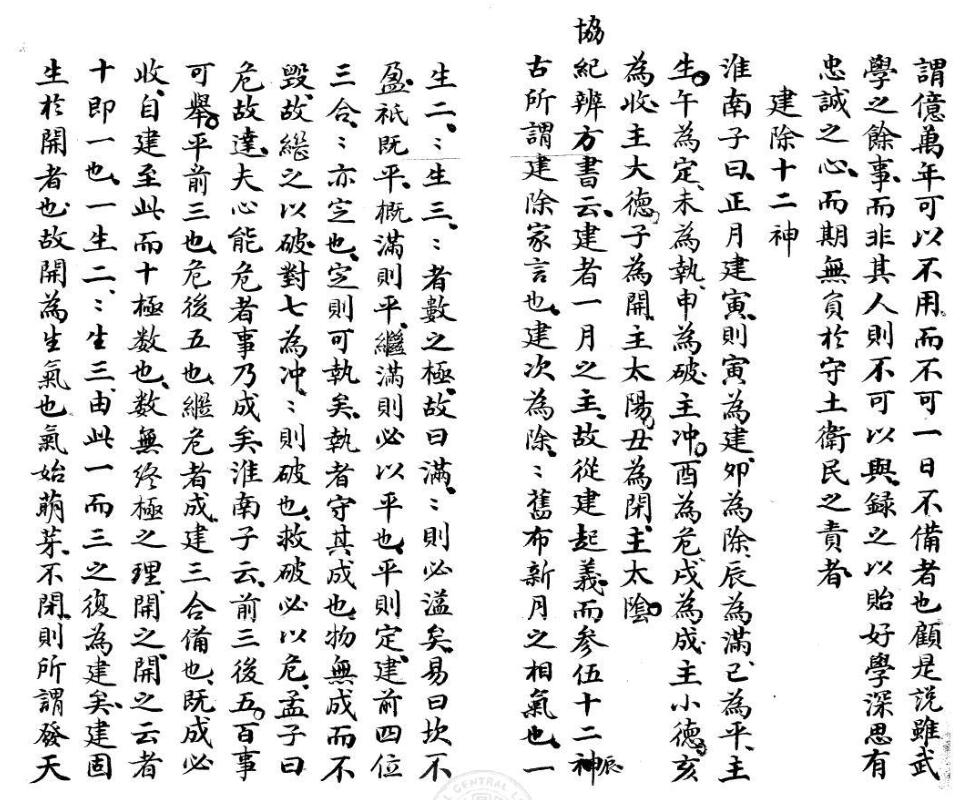 謂億萬年可以不用、而不可一日不備者也、顧是說雖武
學之餘事、而非其人則不可以與、録之以貽好學深思有
忠誠之心、而期無負於守土衛民之責者、
建除十二神
淮南子曰、正月建寅、則寅為建、卯為除、辰為滿、巳為平、主
生。午為定、未為執、申為破、主冲。酉為危、戌為成、主小德、亥
為收、主大德、子為開、主太陽、丑為閉、主太陰。
協紀辨方書云、建者一月之主、故從建起義、而參伍十二神辰
古所謂建除家言也、建次為除、〻舊布新月之相氣也、一
生二、〻生三、〻者數之極、故曰滿、〻則必溢矣、易曰坎不
盈、祇既平、概滿則平、繼滿則必以平也、平則定、建前四位
三合、〻亦定也、定則可執矣、執者守其成也、物無成而不
毀、故繼之以破、對七為冲、〻則破也、救破必以危、孟子曰
危故達、夫心能危者事乃成矣、淮南子云、前三後五。百事
可舉。平前三也、危後五也、繼危者成、建三合備也、既成必
收、自建至此、而十極数也、数無終極之理、開之、開之云者
十即一也、一生二、〻生三、由此一而三之、復為建矣、建固
生於開者也、故開為生氣也、氣始萌芽、不閉、則所謂發天